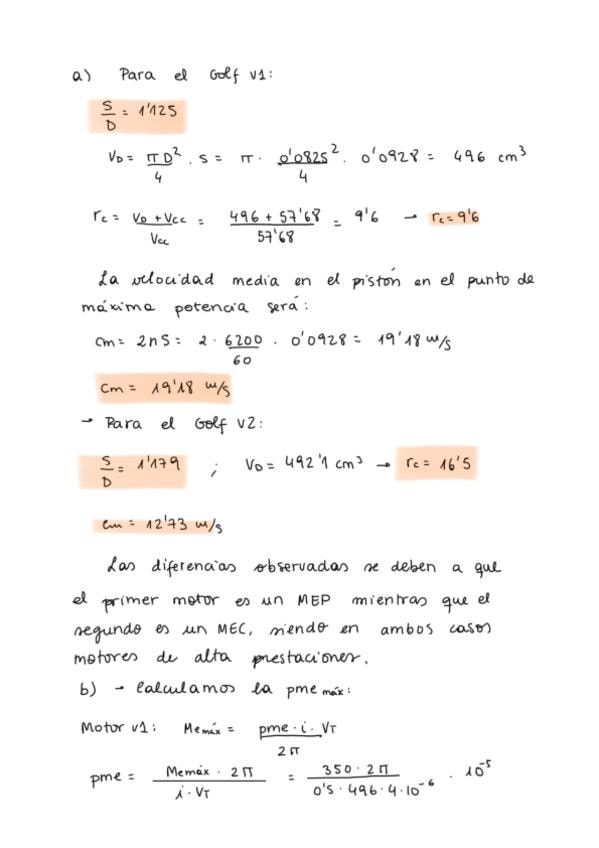 a) Para el Golf v1:
S/D = 1'125
VD = πD²/4 · S = π · 0'0825²/4 · 0'0928 = 496 cm³
rc = VD + Vcc/Vcc = 496 + 57'68/57'68 = 9'6 → rc = 9'6
La velocidad media en el pistón en el punto de
máxima potencia será:
cm = 2nS = 2 · 6200/60 · 0'0928 = 19'18 m/s
cm = 19'18 m/s
→ Para el Golf v2:
S/D = 1'179 ; VD = 492'1 cm³ → rc = 16'5
cm = 12'73 m/s
Las diferencias observadas se deben a que
el primer motor es un MEP mientras que el
segundo es un MEC, siendo en ambos casos
motores de alta prestaciones.
b) → Calculamos la pme máx:
Motor v1: Memáx = pme · i · VT/2π
pme = Memáx · 2π/i · VT = 350 · 2π/0'5 · 496 · 4 · 10⁻⁶ · 10⁻⁵